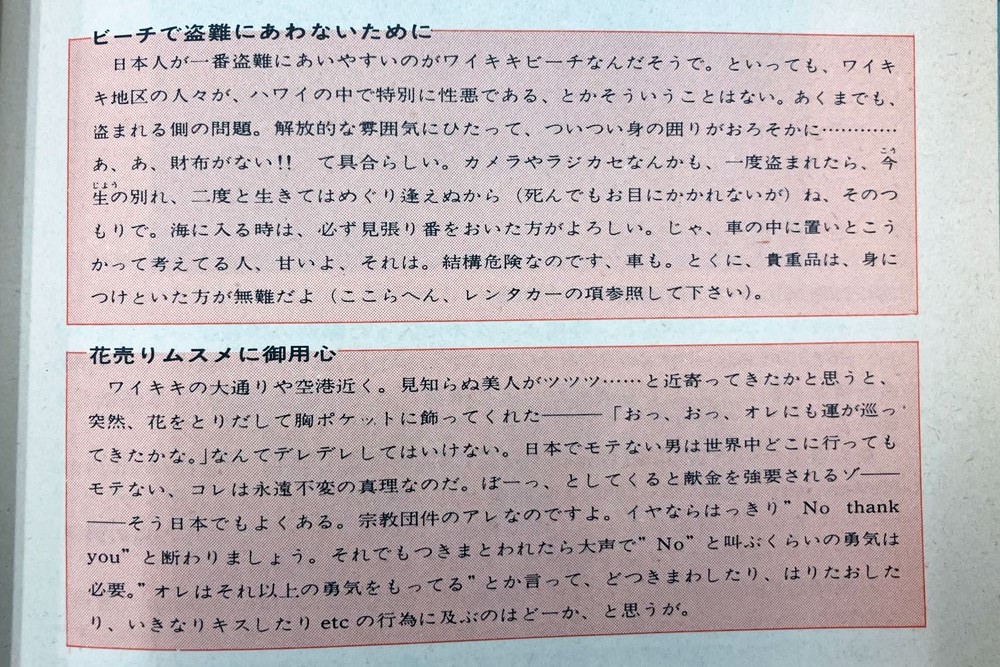 ビーチで盗難にあわないために
日本人が一番盗難にあいやすいのがワイキキビーチなんだそうで。といっても、ワイキ
キ地区の人々が、ハワイの中で特別に性悪である、とかそういうことはない。あくまでも、
盗まれる側の問題。解放的な雰囲気にひたって、ついつい身の囲りがおろそかに…………
ぁ、あ、財布がない!!　て具合らしい。カメラやラジカセなんかも、一度盗まれたら、今
生の別れ、二度と生きてはめぐり逢えぬから（死んでもお目にかかれないが）ね、そのつ
もりで。海に入る時は、必ず見張り番をおいた方がよろしい。じゃ、車の中に置いとこう
かって考えてる人、甘いよ、それは。結構危険なのです、車も。とくに、貴重品は、身に
つけといた方が無難だよ（ここらへん、レンタカーの項参照して下さい）。
花売りムスメに御用心
ワイキキの大通りや空港近く。見知らぬ美人がツツツ……と近寄ってきたかと思うと、
突然、花をとりだして胸ポケットに飾ってくれた――「おっ、おっ、オレにも運が巡っ
てきたかな。」なんてデレデレしてはいけない。日本でモテない男は世界中どこに行っても
モテない、コレは永遠不変の真理なのだ。ぼーっ、としてくると献金を強要されるゾ――
――そう日本でもよくある。宗教団件のアレなのですよ。イヤならはっきり” No thank
you” と断わりましょう。それでもつきまとわれたら大声で” No” と叫ぶくらいの勇気は
必要。” オレはそれ以上の勇気をもってる” とか言って、どつきまわしたり、はりたおした
り、いきなりキスしたり etc の行為に及ぶのはどーか、と思うが。